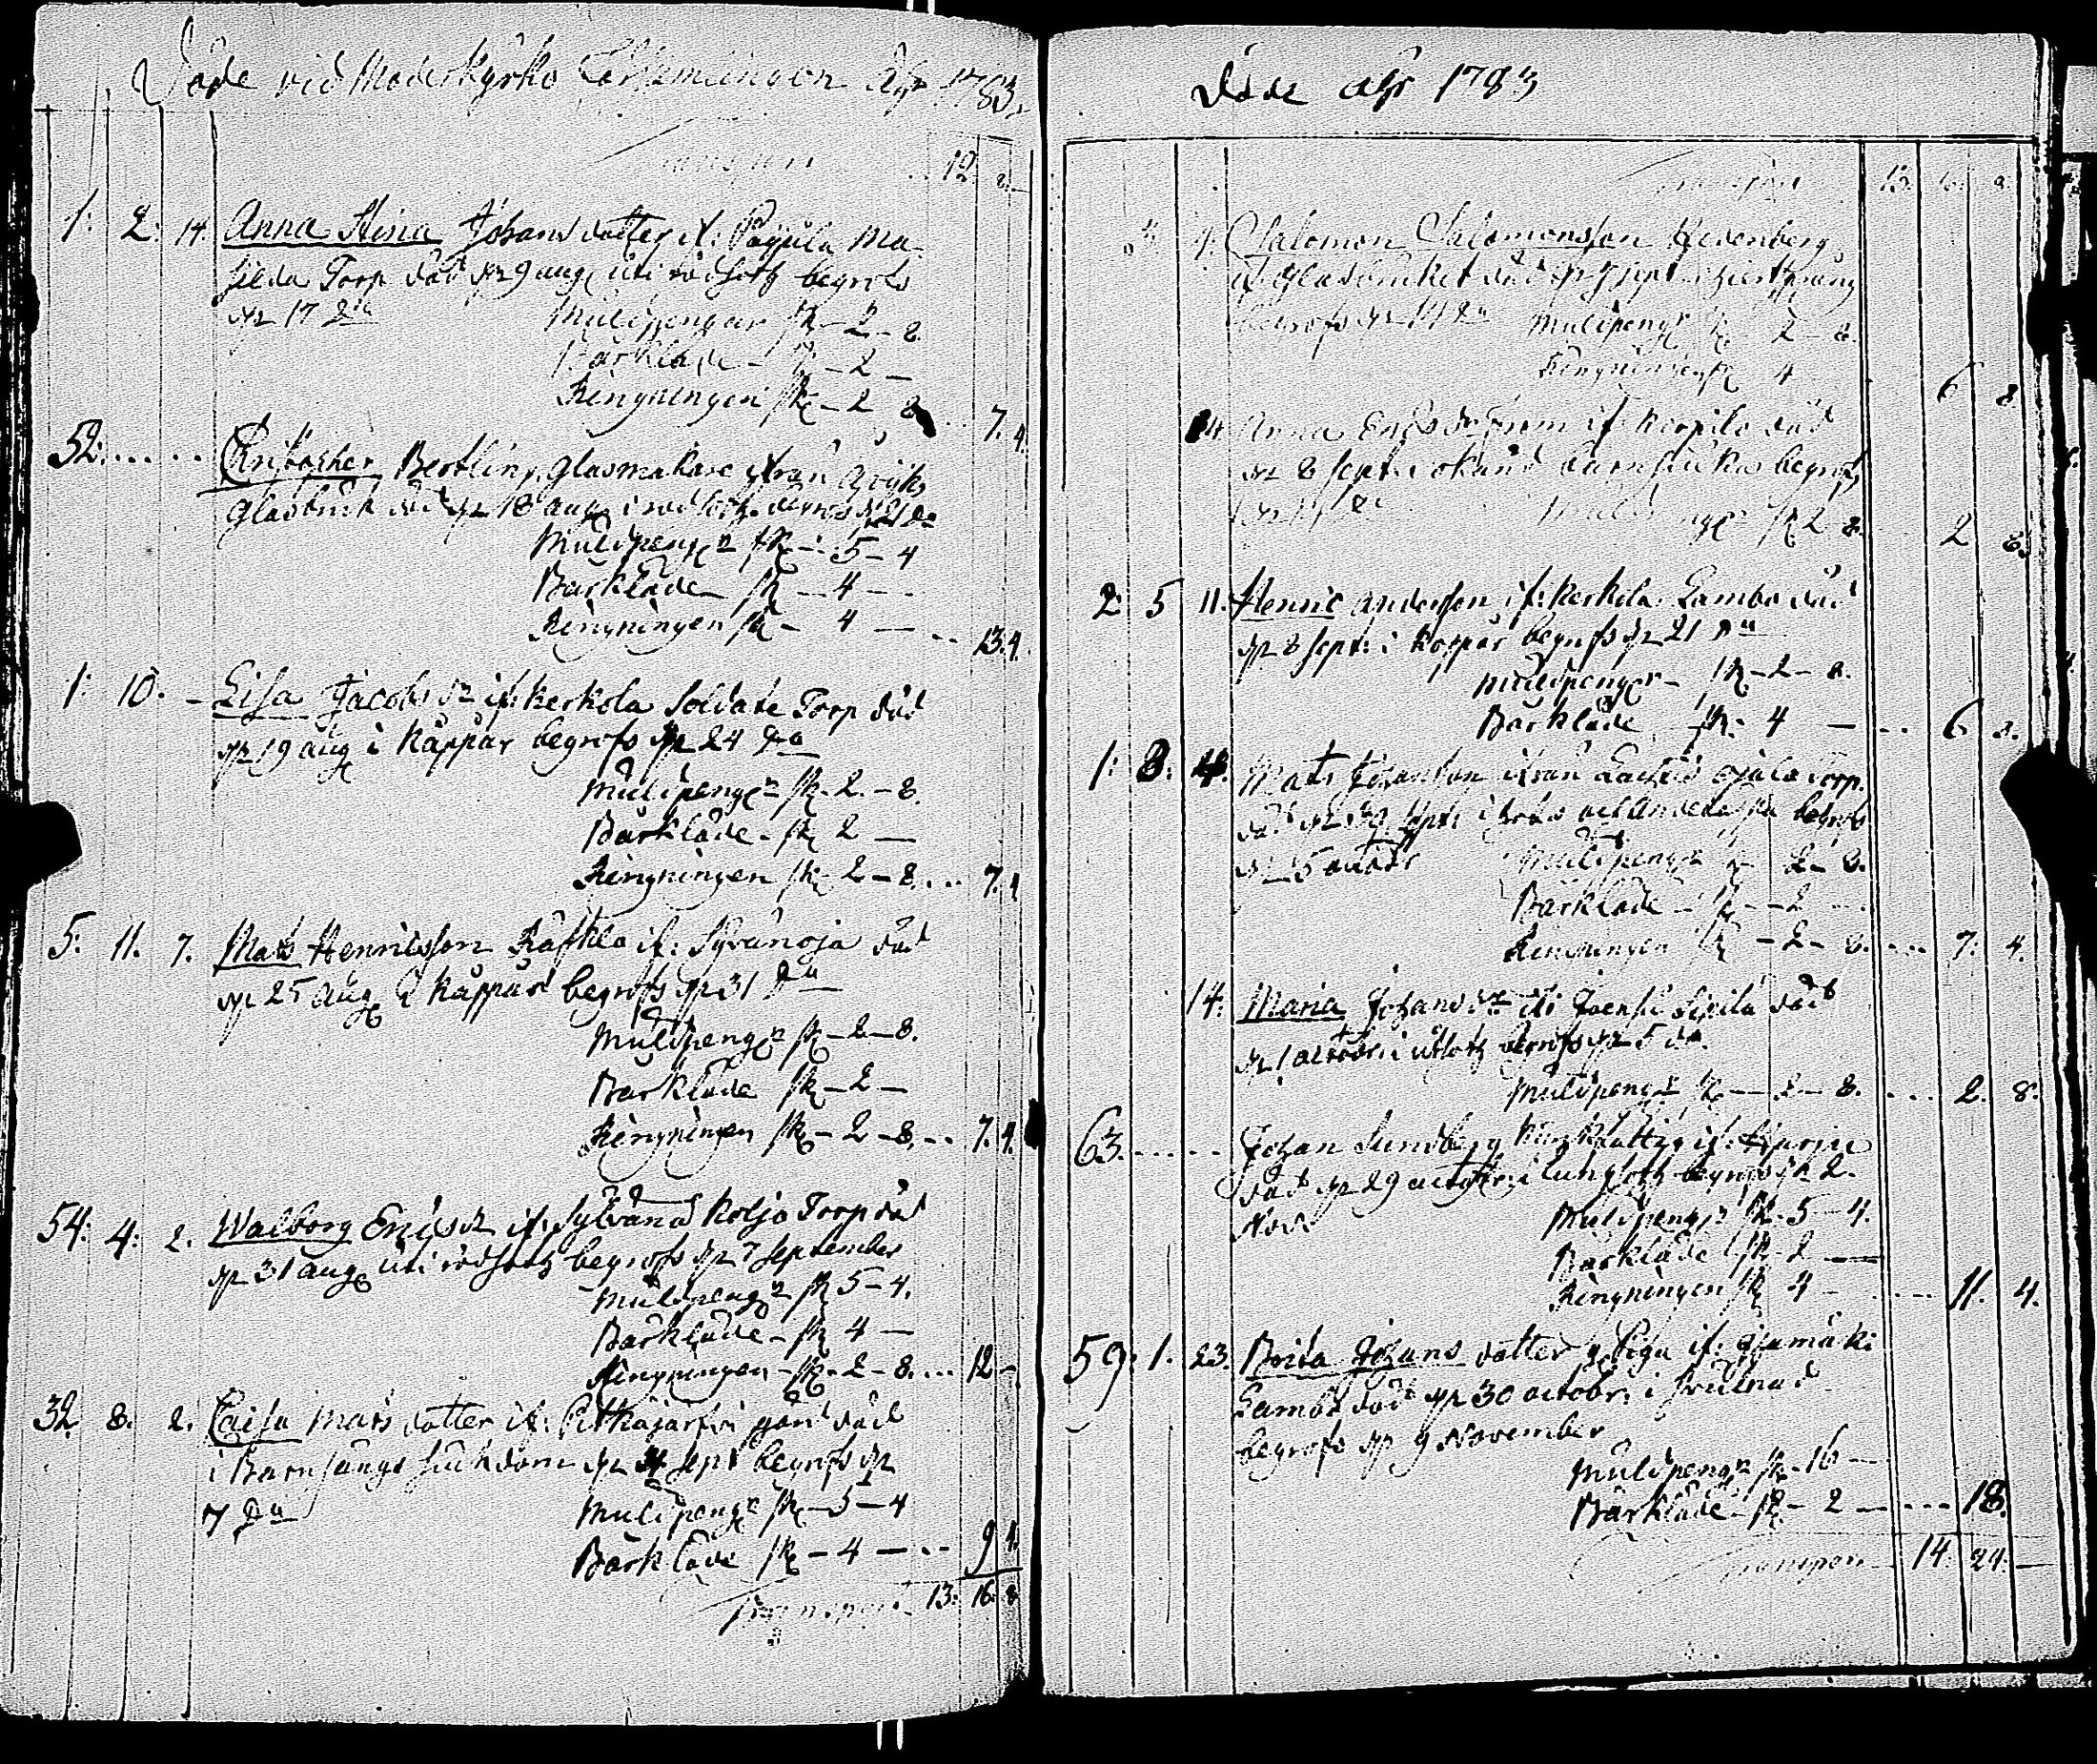 Döde vid Moderkyrko Församlingen Åhr 1783.
Transport .. 12 8.
1: 2: 14. Anna Stina Johans dotter if: Pajula Ma-
silda Torp död d 9 aug uti rödsot begrofs
d 17 do
Mullpengar sk - 2 - 8.
Bårkläde - sk - 2 -
Ringningen sk - 2 8 .. 7. 4.
52. . . . . . Christopher Bertling Glasmakare ifrån Åviks
Glasbruk död d 18 aug i rödsot begrofs d 21 do
Mullpengr sk - 5 - 4
Bårkläde sk - 4 - -
Ringningen sk - 4 - .. 13. 4.
1: 10. - Lisa Jacobs dr if: Kerkola Soldate Torp död
d 19 aug i Kåppår begrofs d 24 do
Mullpengr sk - 2. - 8.
Bårkläde - sk 2 -
Ringningen sk 2 - 8. . . 7. 4
5. 11. 7. Mats Henricsson if: Syvänoja död
d 25 aug i Kåppår begrofs d 31 do
Mullpengr sk - 2 - 8.
Bårkläde sk - 2 -
Ringningen sk - 2 - 8. . . 7. 4.
54: 4: 2. Walborg Erics dr if: Sylvänä Kolja Torp död
d 31 aug uti rödsot begrofs d 7 September
Mullpengr sk 5 - 4.
Bårkläde - sk 4 -
Ringningen - sk - 2 - 8. . . 12 -
32 8. 2. Caisa Mats dotter if: Pitkäjärfvi gård död
i Barnsängs sjukdom d 4 Sept begrofs d
7 do
Mullpengr sk - 5 - 4
Bårkläde sk - 4 - . . 9 4.
Transport 13: 16: 8
Döde åhr 1783
Transport 13. 16. 8.
4. Salomon Salomonsson
if Glasbruket död d sept i
begrofs d 14 do Mullpengr sk 2 - 8.
Ringningen sk 4 6 8.
14 Anna Erics dr if: Korpila död
d 8 sept. i okänd barnsjukd begrofs
d 14 do Mullpengr sk 2 8. 2 8.
2: 5 11. Henric Andersson if: Kerkola Lambo död
d 8 sept. i Koppår begrofs d 21 do
Mullpengr - sk - 2 - 8.
Bårkläde sk - 4 - . . 6 8.
1: 8: 4. Mats Johansson ifrån Ojala Torp.
död d 29 Sept: begrofs
d 5 octobr Mullpengr sk 2 - 8.
Bårkläde - sk - 2 -
Ringningen sk - 2 - 8. . . . 7: 4.
14. Maria Johans dr if: Joensu Sipilä död
d 1 octobr: i utsot begrofs d 5 do.
Mullpengr sk - 2 - 8. . . . 2. 8.
63. . . . . . Johan Sundberg if:
död d 29 octobr: i lungsot begrofs d 2.
Nov. Mullpengr sk - 5 - 4.
Bårkläde sk - 2 -
Ringningen sk 4 - . . . . 11. 4.
59: 1. 23. Brita Johans dotter g: Piga if: Ojamäki
Lambo död d 30 octobr: i
begrofs d 9 November
Mullpengr sk - 16 -
Bårkläde - sk - 2 - . . . . 18.
Transport 14. 24. -